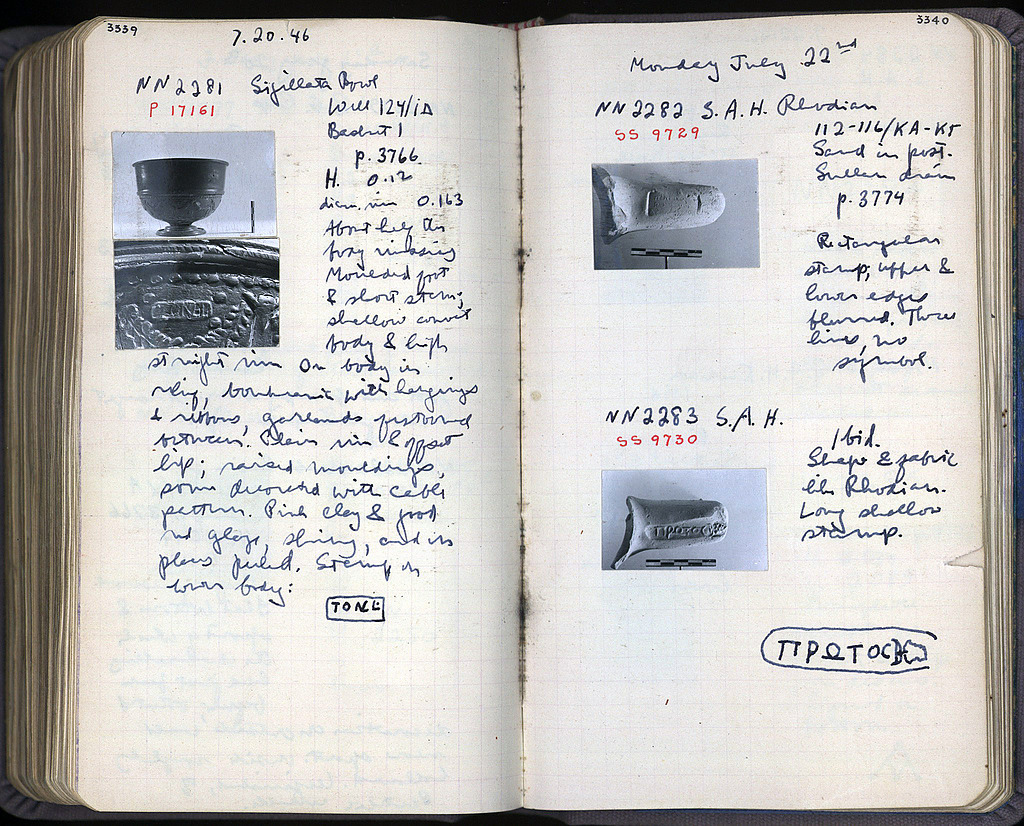 3339
7.20.46
NN 2281 Sigillata Bowl
P 17161
Well 124/ΙΔ
Basket 1
p. 3766
H. 0.12
diam. rim 0.163
About half the
body missing
Moulded foot
& short stem;
shallow convex
body & high
straight rim On body in
relief, boukrania with hangings
& ribbons, garlands festooned
between. Plain rim & offset
lip; raised mouldings,
some decorated with cable
pattern. Pink clay & good
red glaze, shiny, and in
places peeled. Stamp on
lower body:
TONE
3340
Monday July 22nd
NN 2282 S.A.H. Rhodian
SS 9729
112-116/ΚΑ-ΚΓ
Sand in post-
Sullan drain
p. 3774
Rectangular
stamp; upper &
lower edges
blurred. Three
lines, no
symbol.
NN 2283 S.A.H.
SS 9730
Ibid.
Shape & fabric
like Rhodian.
Long shallow
stamp.
ΠΡΩΤΟC